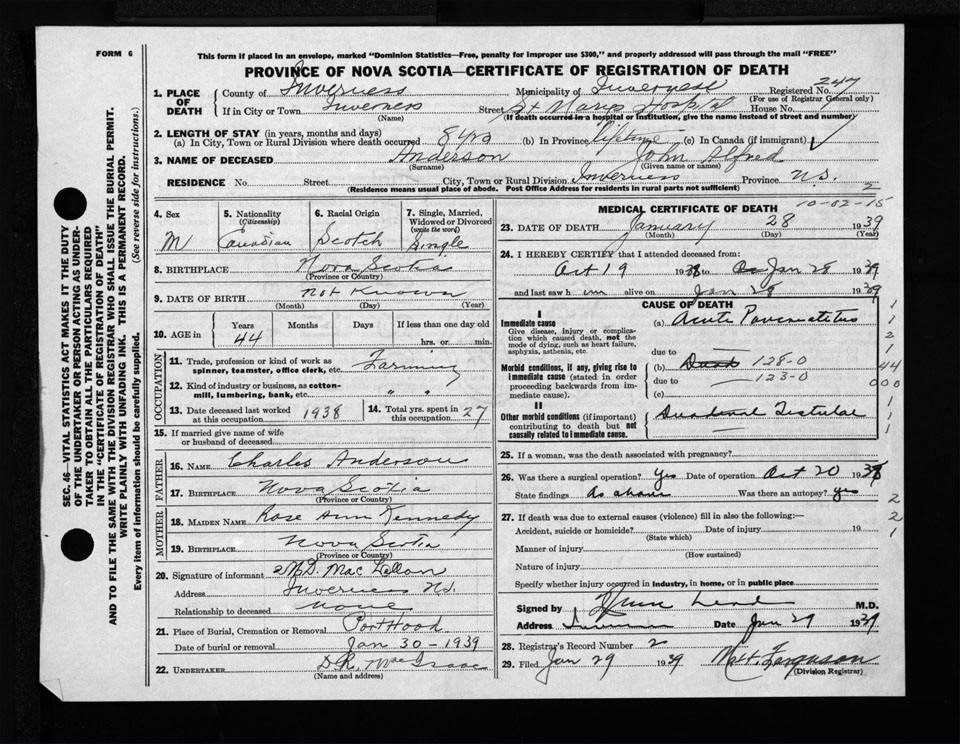 FORM 6
This form if placed in an envelope, marked "Dominion Statistics—Free, penalty for improper use $300," and properly addressed will pass through the mail "FREE"
PROVINCE OF NOVA SCOTIA—CERTIFICATE OF REGISTRATION OF DEATH
SEC. 46—VITAL STATISTICS ACT MAKES IT THE DUTY
OF THE UNDERTAKER OR PERSON ACTING AS UNDER-
TAKER TO OBTAIN ALL THE PARTICULARS REQUIRED
IN THE "CERTIFICATE OF REGISTRATION OF DEATH"
AND TO FILE THE SAME WITH THE DIVISION REGISTRAR WHO SHALL ISSUE THE BURIAL PERMIT.
WRITE PLAINLY WITH UNFADING INK. THIS IS A PERMANENT RECORD.
Every item of information should be carefully supplied. (See reverse side for instructions.)
1. PLACE OF DEATH County of Inverness Municipality of Inverness Registered No. 247
(For use of Registrar General only)
If in City or Town Inverness Street St Marys Hospital House No.
(Name) (If death occurred in a hospital or institution, give the name instead of street and number)
2. LENGTH OF STAY (in years, months and days)
(a) In City, Town or Rural Division where death occurred 8 yrs (b) In Province lifetime (c) In Canada (if immigrant)
3. NAME OF DECEASED Anderson John Alfred
(Surname) (Given name or names)
RESIDENCE No. Street City, Town or Rural Division Inverness Province N.S.
(Residence means usual place of abode. Post Office Address for residents in rural parts not sufficient) 2
4. Sex M
5. Nationality (Citizenship) Canadian
6. Racial Origin Scotch
7. Single, Married, Widowed or Divorced (write the word) Single
8. BIRTHPLACE Nova Scotia
(Province or Country)
9. DATE OF BIRTH not known
(Month) (Day) (Year)
10. AGE in Years 44 Months Days If less than one day old hrs. or min.
OCCUPATION
11. Trade, profession or kind of work as spinner, teamster, office clerk, etc. Farming
12. Kind of industry or business, as cotton-mill, lumbering, bank, etc. " "
13. Date deceased last worked at this occupation 1938
14. Total yrs. spent in this occupation 27
15. If married give name of wife or husband of deceased
FATHER
16. NAME Charles Anderson
17. BIRTHPLACE Nova Scotia
(Province or Country)
MOTHER
18. MAIDEN NAME Rose Ann Kennedy
19. BIRTHPLACE Nova Scotia
(Province or Country)
20. Signature of informant D. Mac Lellan
Address Inverness N.S.
Relationship to deceased None
21. Place of Burial, Cremation or Removal Port Hood
Date of burial or removal Jan 30 - 1939
22. UNDERTAKER D.R. MacIsaac
(Name and address)
10-02-15
MEDICAL CERTIFICATE OF DEATH
23. DATE OF DEATH January 28 1939
(Month) (Day) (Year)
24. I HEREBY CERTIFY that I attended deceased from:
Oct 19 1938 to Jan 28 1939
and last saw him alive on Jan 28 1939
CAUSE OF DEATH
I
Immediate cause (a) Acute Pancreatitis
Give disease, injury or complication which caused death, not the mode of dying, such as heart failure, asphyxia, asthenia, etc.
due to
Morbid conditions, if any, giving rise to immediate cause (stated in order proceeding backwards from immediate cause). (b) 128-0
due to 123-0
(c)
II
Other morbid conditions (if important) contributing to death but not causally related to immediate cause. Duodenal Fistula
25. If a woman, was the death associated with pregnancy?
26. Was there a surgical operation? Yes Date of operation Oct 20 1938
State findings as above Was there an autopsy? yes
27. If death was due to external causes (violence) fill in also the following:—
Accident, suicide or homicide? Date of injury 19
(State which)
Manner of injury
(How sustained)
Nature of injury
Specify whether injury occurred in industry, in home, or in public place
Signed by M.D.
Address Date Jan 29 1939
28. Registrar's Record Number 2
29. Filed Jan 29 1939 Ferguson
(Division Registrar)